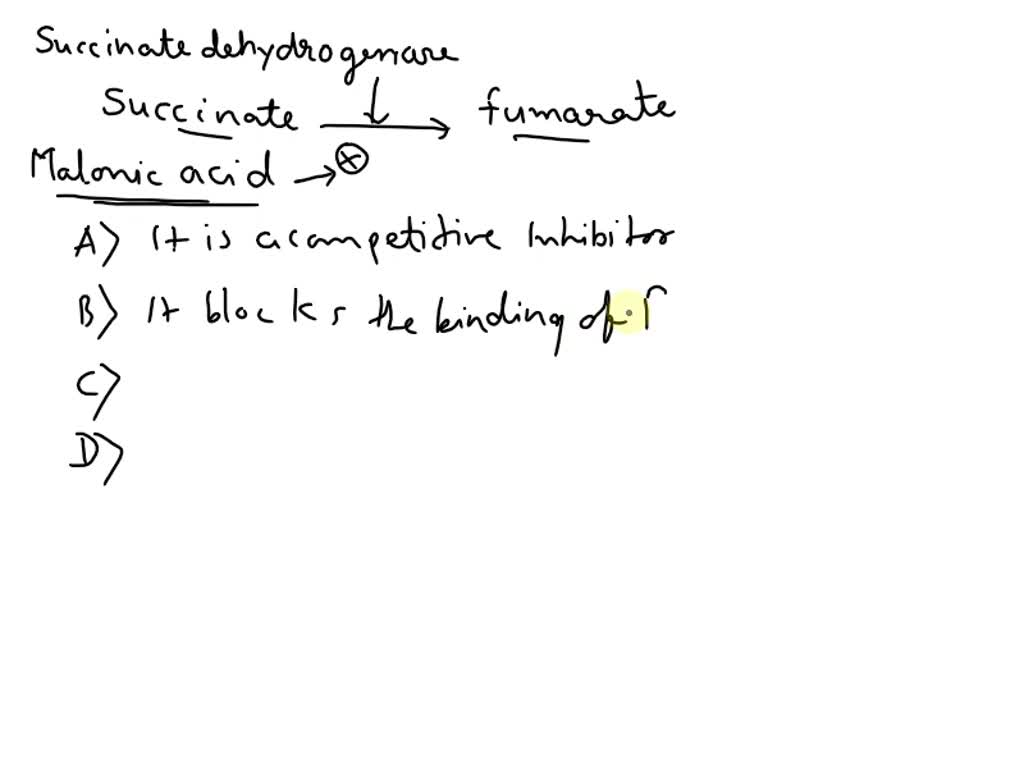 Succinate dehydrogenase
Succinate → fumarate
Malonic acid → ⊗
A) It is a competitive Inhibitor
B) It blocks the binding of
C)
D)